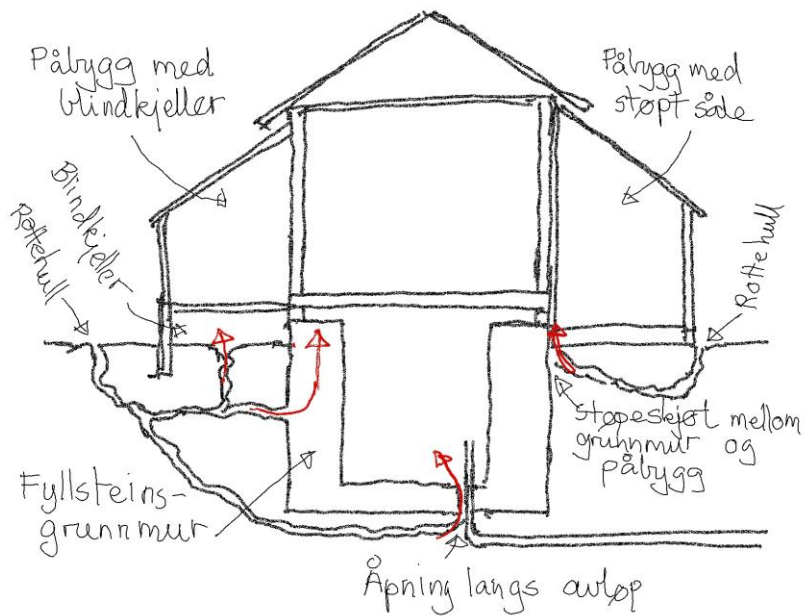 Påbygg med
blindkjeller
Påbygg med
støpt såle
Blindkjeller
Rottehull
Rottehull
Støpeskjøt mellom
grunnmur og
påbygg
Fyllsteins-
grunnmur
Åpning langs avløp